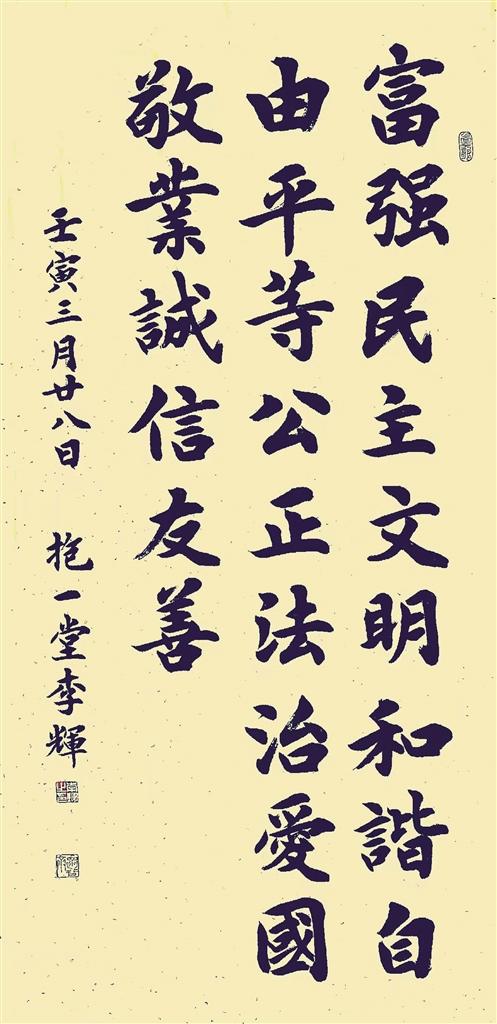 富强民主文明和諧自
由平等公正法治愛國
敬業誠信友善
壬寅三月廿八日 抱一堂李輝